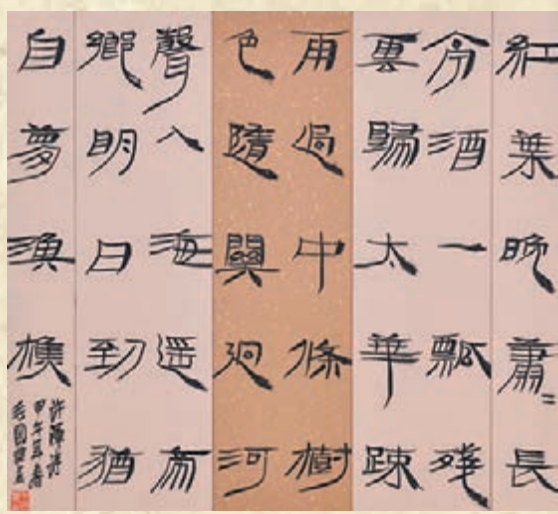 紅葉晚蕭〻長
亭酒一瓢殘
雲歸太華踈
雨過中條樹
色隨關迥河
聲入海遥帝
鄉明日到猶
自夢漁樵
許渾詩
甲午年春
毛國典書